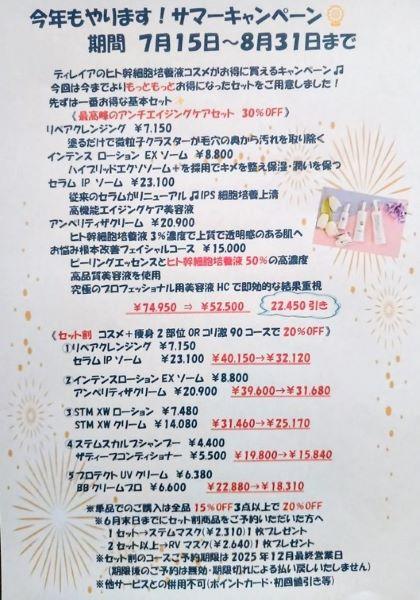 今年もやります！サマーキャンペーン
期間 7月15日～8月31日まで
ディレイアのヒト幹細胞培養液コスメがお得に買えるキャンペーン♫
今回は今までよりもっともっとお得になったセットをご用意しました！
先ずは一番お得な基本セット
《最高峰のアンチエイジングケアセット 30%OFF》
リペアクレンジング ¥7.150
塗るだけで微粒子クラスターが毛穴の奥から汚れを取り除く
インテンス ローション EX ソーム ¥8.800
ハイブリッドエクソソーム＋を採用でキメを整え保湿・潤いを保つ
セラム IP ソーム ¥23.100
従来のセラムがリニューアル♫IPS細胞培養上清
高機能エイジングケア美容液
アンペリティザクリーム ¥20.900
ヒト幹細胞培養液3%濃度で上質で透明感のある肌へ
お悩み根本改善フェイシャルコース ¥15.000
ピーリングエッセンスとヒト幹細胞培養液50%の高濃度
高品質美容液を使用
究極のプロフェッショナル用美容液HCで即効的な結果重視
¥74.950 ⇒ ¥52.500 22.450引き
《セット割 コスメ＋痩身2部位ORコリ激90コースで20%OFF》
①リペアクレンジング ¥7.150
セラムIPソーム ¥23.100 ¥40.150→¥32.120
②インテンスローションEXソーム ¥8.800
アンペリティザクリーム ¥20.900 ¥39.600→¥31.680
③STM XWローション ¥7.480
STM XWクリーム ¥14.080 ¥31.460→¥25.170
④ステムスカルプシャンプー ¥4.400
ザディープコンディショナー ¥5.500 ¥19.800→¥15.840
⑤プロテクトUVクリーム ¥6.380
BBクリームプロ ¥6.600 ¥22.880→¥18.310
※単品でのご購入は全品15%OFF3点以上で20%OFF
※6月末日までにセット割商品をご予約いただいた方へ
1セット→ステムマスク(¥2.310)1枚プレゼント
2セット以上→RVマスク(¥2.640)1枚プレゼント
※セット割のコースご予約期限は2025年12月最終営業日
(期限後のご予約は無効・期限切れによる払い戻しいたしません)
※他サービスとの併用不可(ポイントカード・初回値引き等)